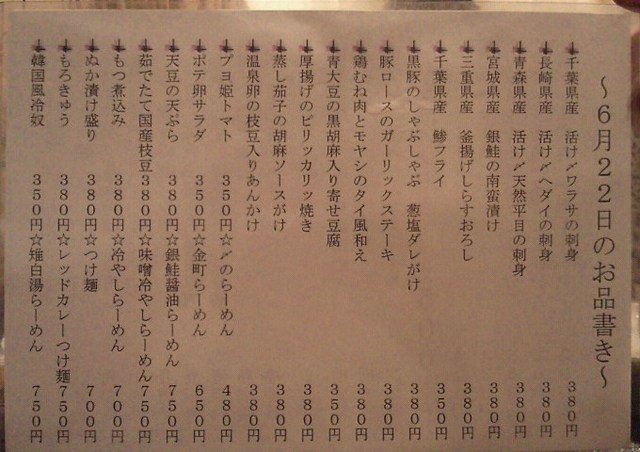 ～６月２２日のお品書き～
千葉県産　活け〆ワラサの刺身　３８０円
長崎県産　活け〆ヘダイの刺身　３８０円
青森県産　活け〆天然平目の刺身　３８０円
宮城県産　銀鮭の南蛮漬け　３８０円
三重県産　釜揚げしらすおろし　３８０円
千葉県産　鯵フライ　３５０円
黒豚のしゃぶしゃぶ　葱塩ダレがけ　３８０円
豚ロースのガーリックステーキ　３８０円
鶏むね肉とモヤシのタイ風和え　３８０円
青大豆の黒胡麻入り寄せ豆腐　３５０円
厚揚げのピリッカリッ焼き　３８０円
蒸し茄子の胡麻ソースがけ　３８０円
温泉卵の枝豆入りあんかけ　３８０円
プヨ姫トマト　３５０円☆〆のらーめん　４８０円
ポテ卵サラダ　３５０円☆金町らーめん　６５０円
天豆の天ぷら　３８０円☆銀鮭醤油らーめん　７５０円
茹でたて国産枝豆　３８０円☆味噌冷やしらーめん　７５０円
もつ煮込み　３８０円☆冷やしらーめん　７００円
ぬか漬け盛り　３８０円☆つけ麺　７００円
もろきゅう　３８０円☆レッドカレーつけ麺　７５０円
韓国風冷奴　３５０円☆雉白湯らーめん　７５０円